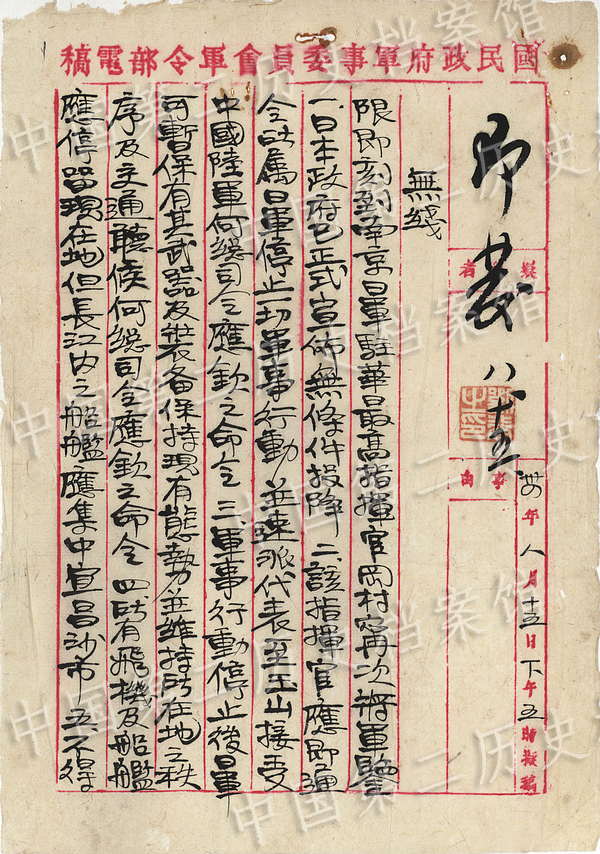 國民政府軍事委員會軍令部電稿
即發 八 十五
擬 者
事 由
卅年八月十五日下午五時擬稿
無綫
限即刻到南京日軍駐華最高指揮官岡村寧次將軍鑒
一、日本政府已正式宣佈無條件投降 二、該指揮官應即通
令所屬日軍停止一切軍事行動並速派代表至玉山接受
中國陸軍何總司令應欽之命令 三、軍事行動停止後日軍
可暫保有其武器及裝备保持現有態勢並維持所在地之秩
序及交通聽候何總司令應欽之命令 四、所有飛機及船艦
應停留現在地但長江內之船艦應集中宜昌沙市 五、不得
中国第二历史档案馆
中国第二历史档案馆
中国第二历史档案馆
中国第二历史档案馆